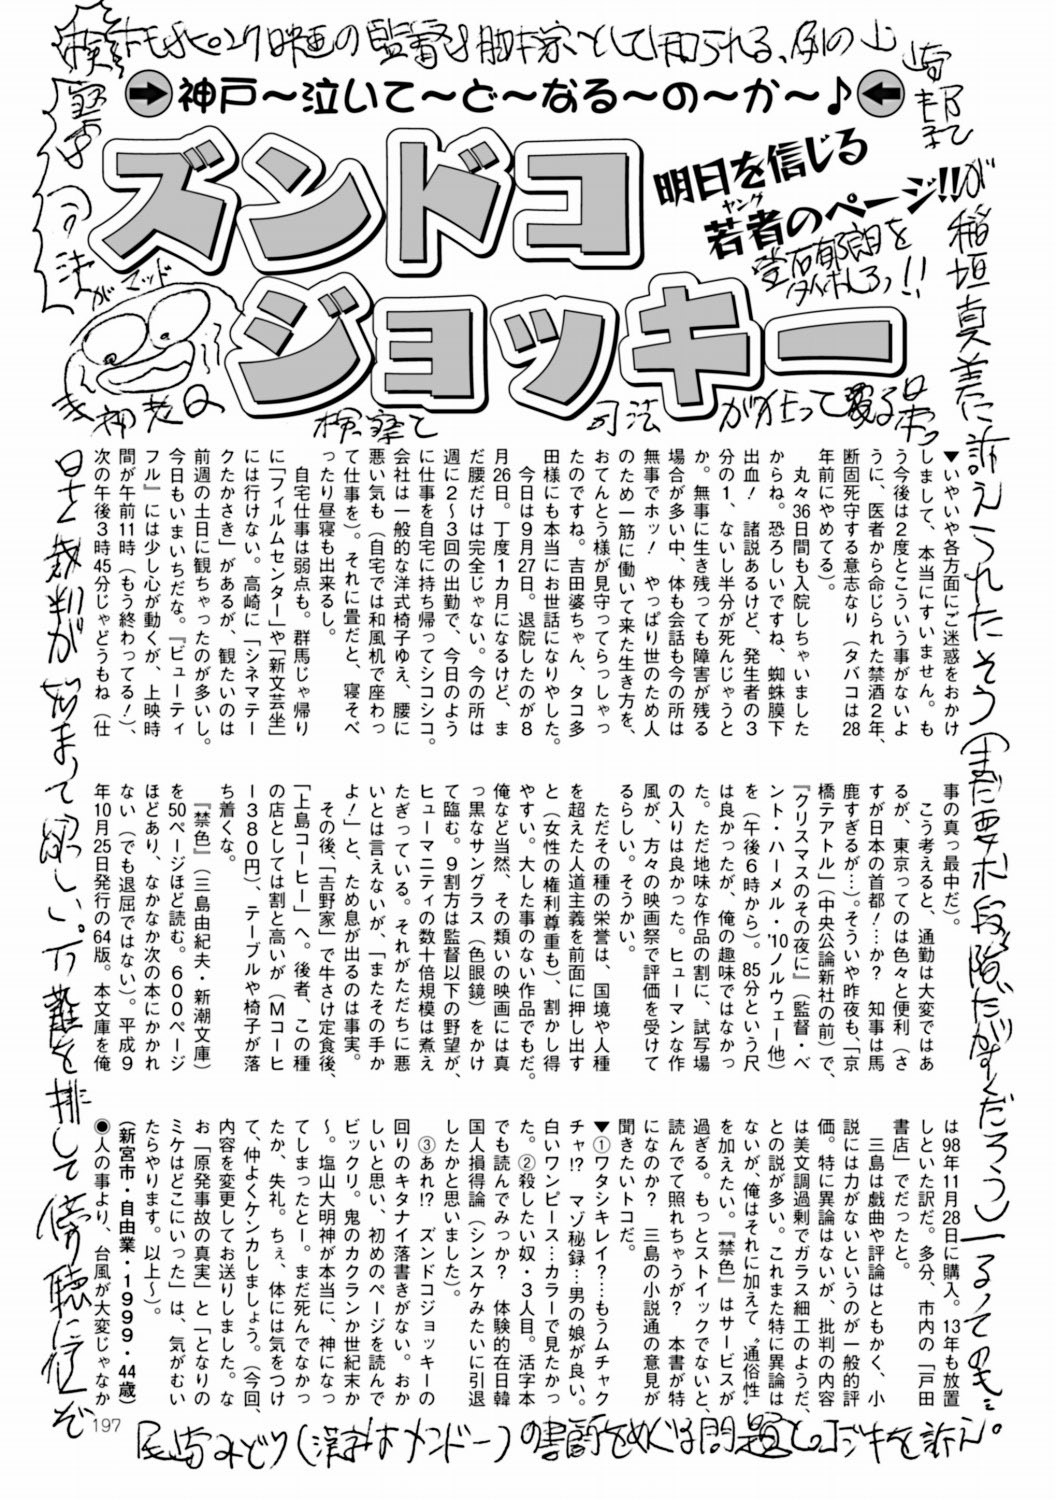 ➡神戸〜泣いて〜ど〜なる〜の〜か〜♪⬅
ズンドコ
ジョッキー
明日を信じる
ヤング
若者のページ!!
検察て
司法
▼いやいや各方面にご迷惑をおかけ
しまして、本当にすいません。も
う今後は2度とこういう事がないよ
うに、医者から命じられた禁酒2年、
断固死守する意志なり（タバコは28
年前にやめてる）。
丸々36日間も入院しちゃいました
からね。恐ろしいですね、蜘蛛膜下
出血！ 諸説あるけど、発生者の3
分の1、ないし半分が死んじゃうと
か。無事に生き残っても障害が残る
場合が多い中、体も会話も今の所は
無事でホッ！ やっぱり世のため人
のため一筋に働いて来た生き方を、
おてんとう様が見守ってらっしゃっ
たのですね。吉田婆ちゃん、タコ多
田様にも本当にお世話になりやした。
今日は9月27日。退院したのが8
月26日。丁度1カ月になるけど、ま
だ腰だけは完全じゃない。今の所は
週に2〜3回の出勤で、今日のよう
に仕事を自宅に持ち帰ってシコシコ。
会社は一般的な洋式椅子ゆえ、腰に
悪い気も（自宅では和風机で座わっ
て仕事を）。それに畳だと、寝そべ
ったり昼寝も出来るし。
自宅仕事は弱点も。群馬じゃ帰り
に「フィルムセンター」や「新文芸坐」
には行けない。高崎に「シネマテー
クたかさき」があるが、観たいのは
前週の土日に観ちゃったのが多いし。
今日もいまいちだな。『ビューティ
フル』には少し心が動くが、上映時
間が午前11時（もう終わってる！）、
次の午後3時45分じゃどうもね（仕
事の真っ最中だ）。
こう考えると、通勤は大変ではあ
るが、東京ってのは色々と便利（さ
すが日本の首都！…か？ 知事は馬
鹿すぎるが…）。そういや昨夜も、「京
橋テアトル」（中央公論新社の前）で、
『クリスマスのその夜に』（監督・ベ
ント・ハーメル・'10ノルウェー他）
を（午後6時から）。85分という尺
は良かったが、俺の趣味ではなかっ
た。ただ地味な作品の割に、試写場
の入りは良かった。ヒューマンな作
風が、方々の映画祭で評価を受けて
るらしい。そうかい。
ただその種の栄誉は、国境や人種
を超えた人道主義を前面に押し出す
と（女性の権利尊重も）、割かし得
やすい。大した事のない作品でもだ。
俺など当然、その類いの映画には真
っ黒なサングラス（色眼鏡）をかけ
て臨む。9割方は監督以下の野望が、
ヒューマニティの数十倍規模は煮え
たぎっている。それがただちに悪
いとは言えないが、「またその手か
よ！」と、ため息が出るのは事実。
その後、「吉野家」で牛さけ定食後、
「上島コーヒー」へ。後者、この種
の店としては割と高いが（Mコーヒ
ー380円）、テーブルや椅子が落
ち着くな。
『禁色』（三島由紀夫・新潮文庫）
を50ページほど読む。600ページ
ほどあり、なかなか次の本にかかれ
ない（でも退屈ではない）。平成9
年10月25日発行の64版。本文庫を俺
は98年11月28日に購入。13年も放置
しといた訳だ。多分、市内の「戸田
書店」でだったと。
三島は戯曲や評論はともかく、小
説には力がないというのが一般的評
価。特に異論はないが、批判の内容
は美文調過剰でガラス細工のようだ、
との説が多い。これまた特に異論は
ないが、俺はそれに加えて〝通俗性〟
を加えたい。『禁色』はサービスが
過ぎる。もっとストイックでないと、
読んでて照れちゃうが？ 本書が特
になのか？ 三島の小説通の意見が
聞きたいトコだ。
▼①ワタシキレイ？…もうムチャク
チャ!? マゾ秘録…男の娘が良い。
白いワンピース…カラーで見たかっ
た。②殺したい奴・3人目。活字本
でも読んでみっか？ 体験的在日韓
国人損得論（シンスケみたいに引退
したかと思いました）。
③あれ!? ズンドコジョッキーの
回りのキタナイ落書きがない。おか
しいと思い、初めのページを読んで
ビックリ。鬼のカクランか世紀末か
〜。塩山大明神が本当に、神になっ
てしまったとー。まだ死んでなかっ
たか、失礼。ちぇ、体には気をつけ
て、仲よくケンカしましょう。（今回、
内容を変更してお送りしました。な
お「原発事故の真実」と「となりの
ミケはどこにいった」は、気がむい
たらやります。以上〜）。
（新宮市・自由業・1999・44歳）
●人の事より、台風が大変じゃなか
197